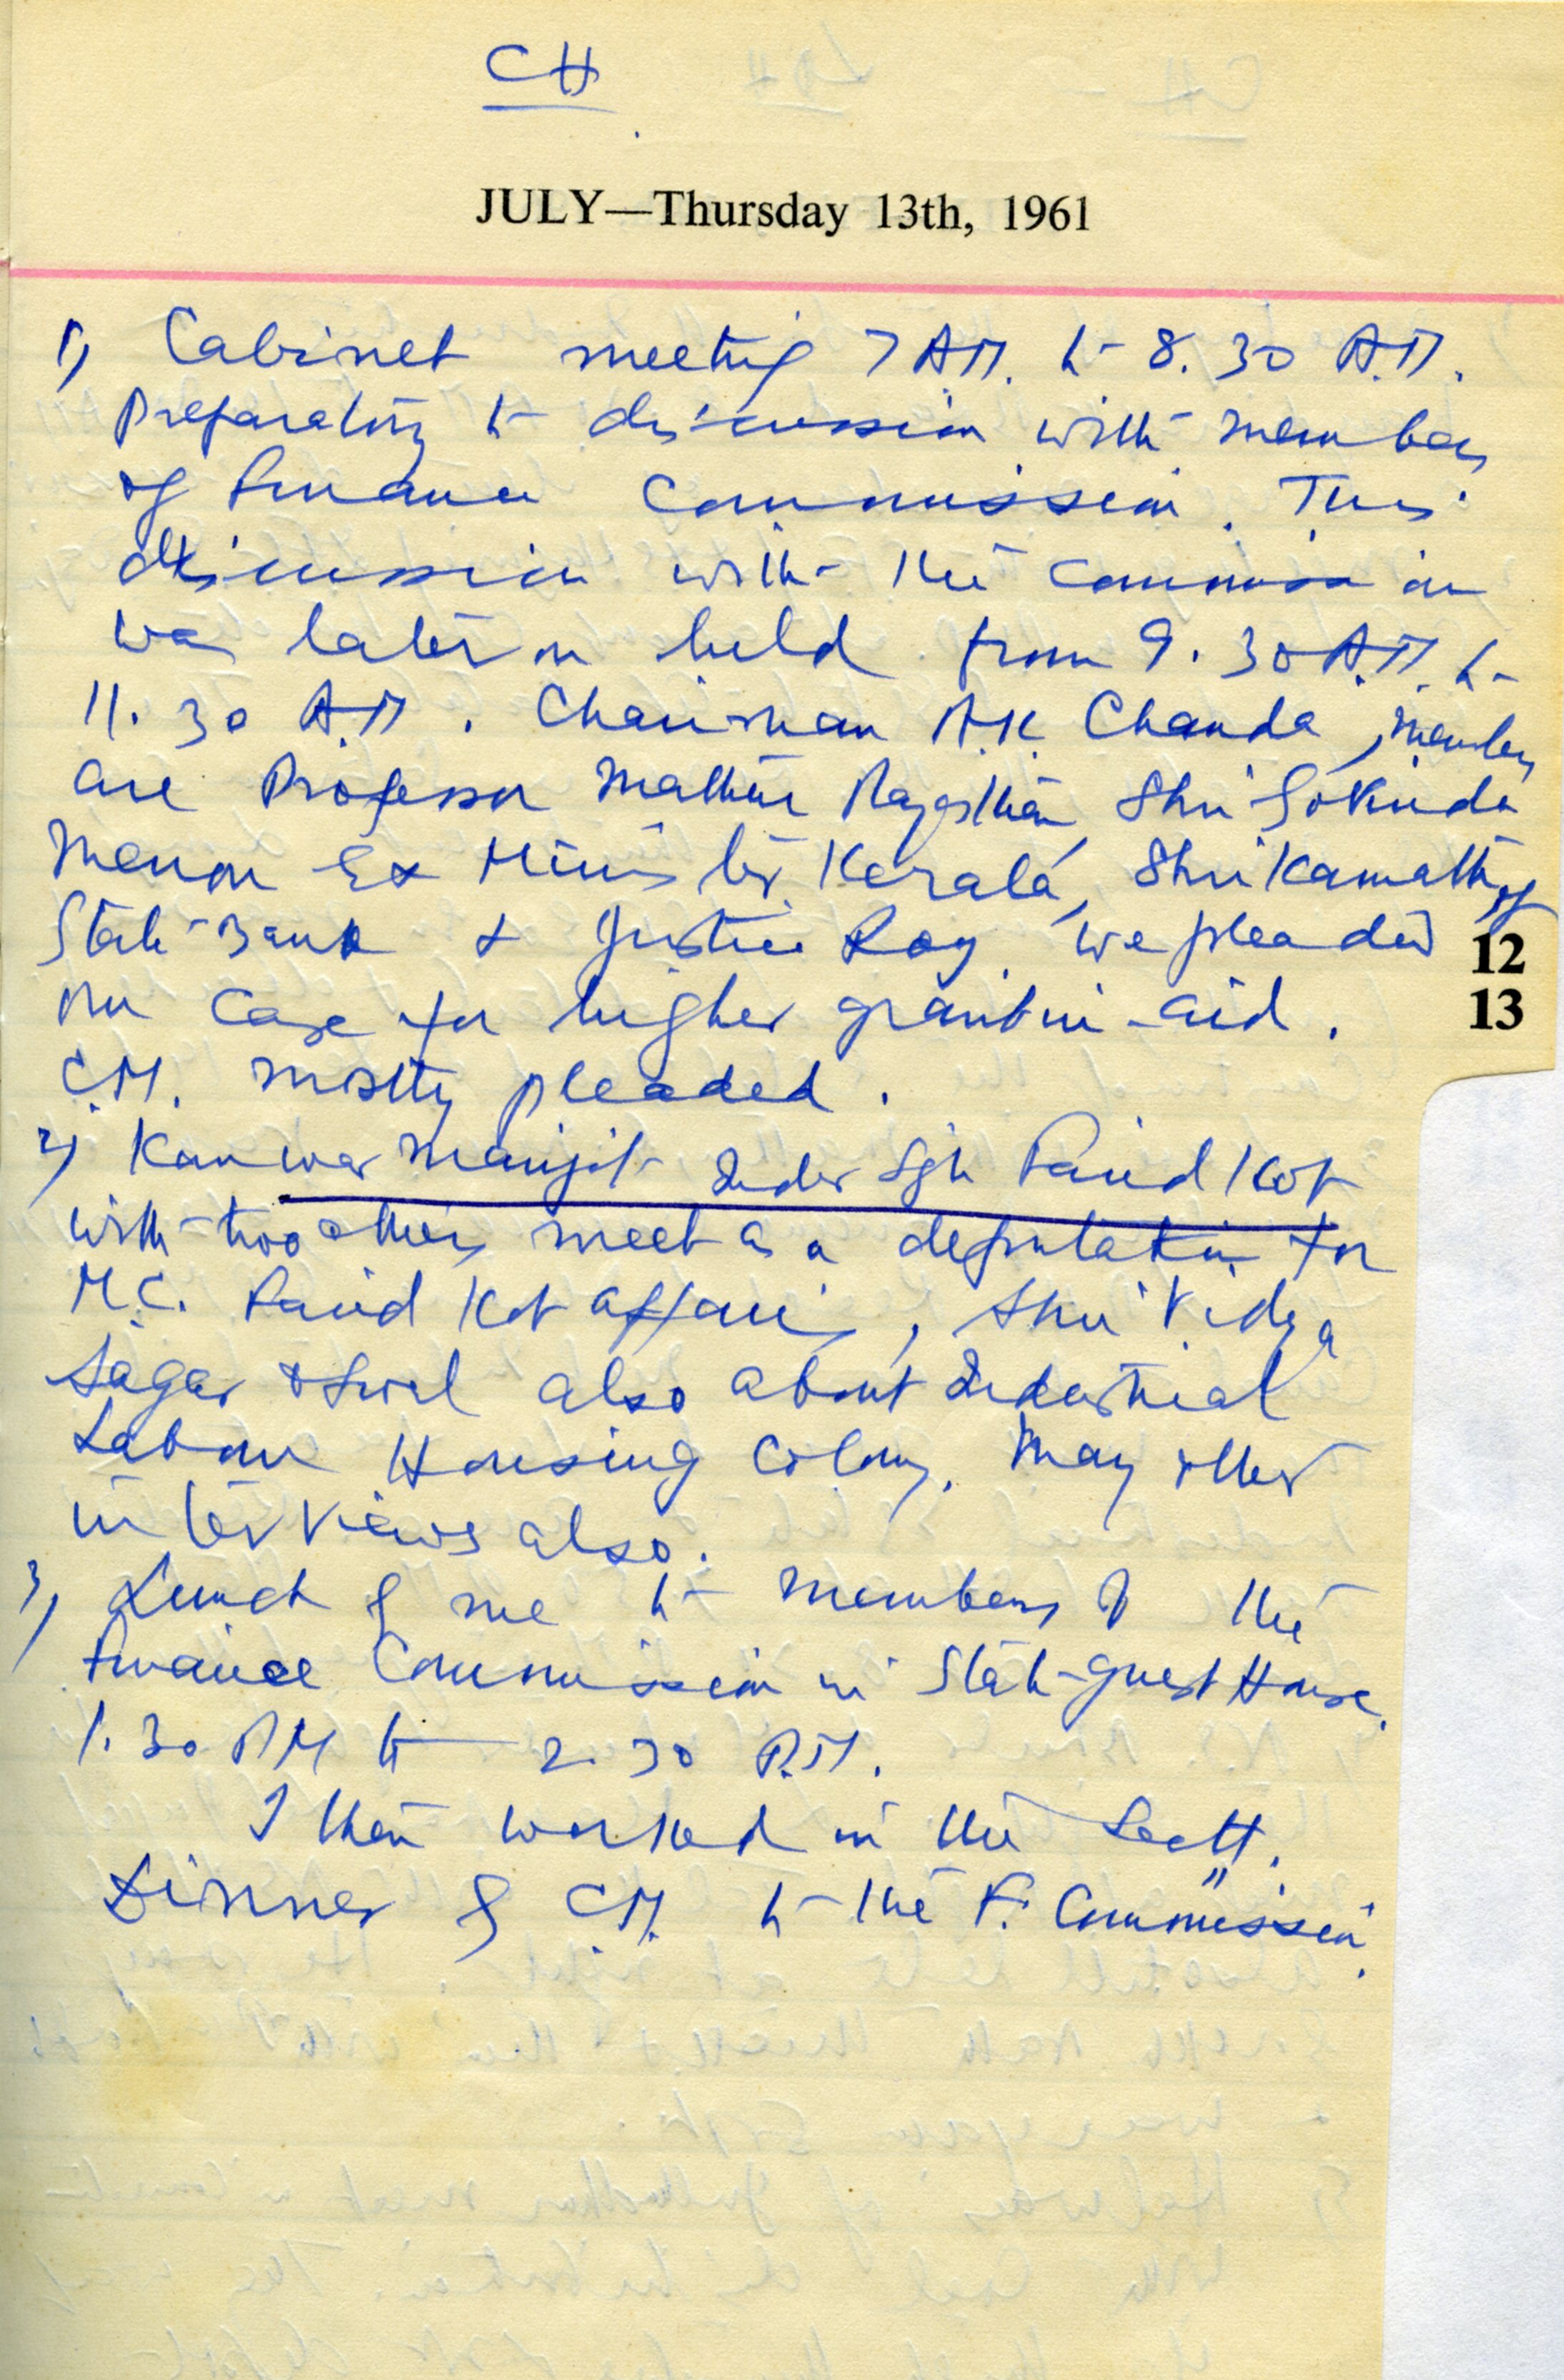 CH
JULY—Thursday 13th, 1961
1) Cabinet meeting 7 A.M. to 8.30 A.M.
Preparatory to discussion with members
of Finance Commission. This
discussion with the Commission
was later on held from 9.30 A.M. to
11.30 A.M. Chairman A.K. Chanda, members
are Professor Mathur Rajasthan, Shri Govinda
Menon Ex Minister Kerala, Shri Kamath of
State Bank & Justice Roy. We pleaded
12
our case for higher grant in-aid.
13
C.M. mostly pleaded.
2) Kanwar Manjit Inder Sgh Farid Kot
with two others meet as a deputation for
M.C. Farid Kot affairs, Shri Vidya
Sagar also about Industrial
Labour Housing Colony. Many other
interviews also.
3) Lunch by me to members of the
Finance Commission in State Guest House.
1.30 PM to 2.30 P.M.
I then worked in the Sectt.
Dinner by C.M. to the F. Commission.